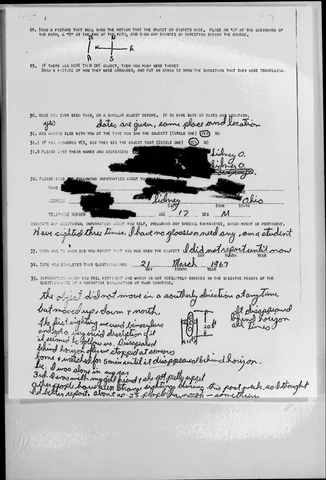 28. DRAW A PICTURE THAT WILL SHOW THE MOTION THAT THE OBJECT OR OBJECTS MADE. PLACE AN "A" AT THE BEGINNING OF
THE PATH, A "B" AT THE END OF THE PATH, AND SHOW ANY CHANGES IN DIRECTION DURING THE COURSE.
29. IF THERE WAS MORE THAN ONE OBJECT, THEN HOW MANY WERE THERE?
DRAW A PICTURE OF HOW THEY WERE ARRANGED, AND PUT AN ARROW TO SHOW THE DIRECTION THAT THEY WERE TRAVELING.
30. HAVE YOU EVER SEEN THIS, OR A SIMILAR OBJECT BEFORE. IF SO GIVE DATE OR DATES AND LOCATION.
yes dates are given, same place and location
31. WAS ANYONE ELSE WITH YOU AT THE TIME YOU SAW THE OBJECT? (CIRCLE ONE) YES NO
31.1 IF YOU ANSWERED YES, DID THEY SEE THE OBJECT TOO? (CIRCLE ONE) YES NO
31.2 PLEASE LIST THEIR NAMES AND ADDRESSES:
Sidney O.
Sidney O.
32. PLEASE GIVE THE FOLLOWING INFORMATION ABOUT
NAME
ADDRESS Sidney Ohio
TELEPHONE NUMBER AGE 17 SEX M
INDICATE ANY ADDITIONAL INFORMATION ABOUT YOU, INCLUDING ANY SPECIAL EXPERIENCE, WHICH MIGHT BE PERTINENT.
Have sighted three times. I have no glasses or need any, am a student
33. WHEN AND TO WHOM DID YOU REPORT THAT YOU HAD SEEN THE OBJECT? I did not report until now
34. DATE YOU COMPLETED THIS QUESTIONNAIRE: 21 March 1967
DAY MONTH YEAR
35. INFORMATION WHICH YOU FEEL PERTINENT AND WHICH IS NOT ADEQUATELY COVERED IN THE SPECIFIC POINTS OF THE
QUESTIONNAIRE OR A NARRATIVE EXPLANATION OF YOUR SIGHTING.
the object did not move in a southerly direction at any time
but moved up, down & north.
It disappeared
behind horizon
all times
20 ft
The first sighting we used binoculars
and got a very vivid description of it
it seemed to follow us. Disappeared
behind horizon
home & watched for 5 min until it disappeared behind horizon.
I was alone in my car
3rd I was with my girl friend & she got pretty upset
other people have seen strange sightings during this past week so I thought
I'd better report. about 20-25 people have seen something